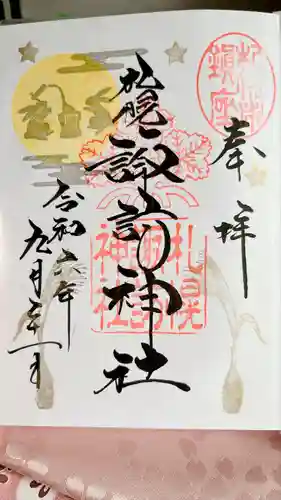 奉拝
札幌鎮座
札幌諏訪神社
札幌諏訪神社
令和六年
九月二十一日